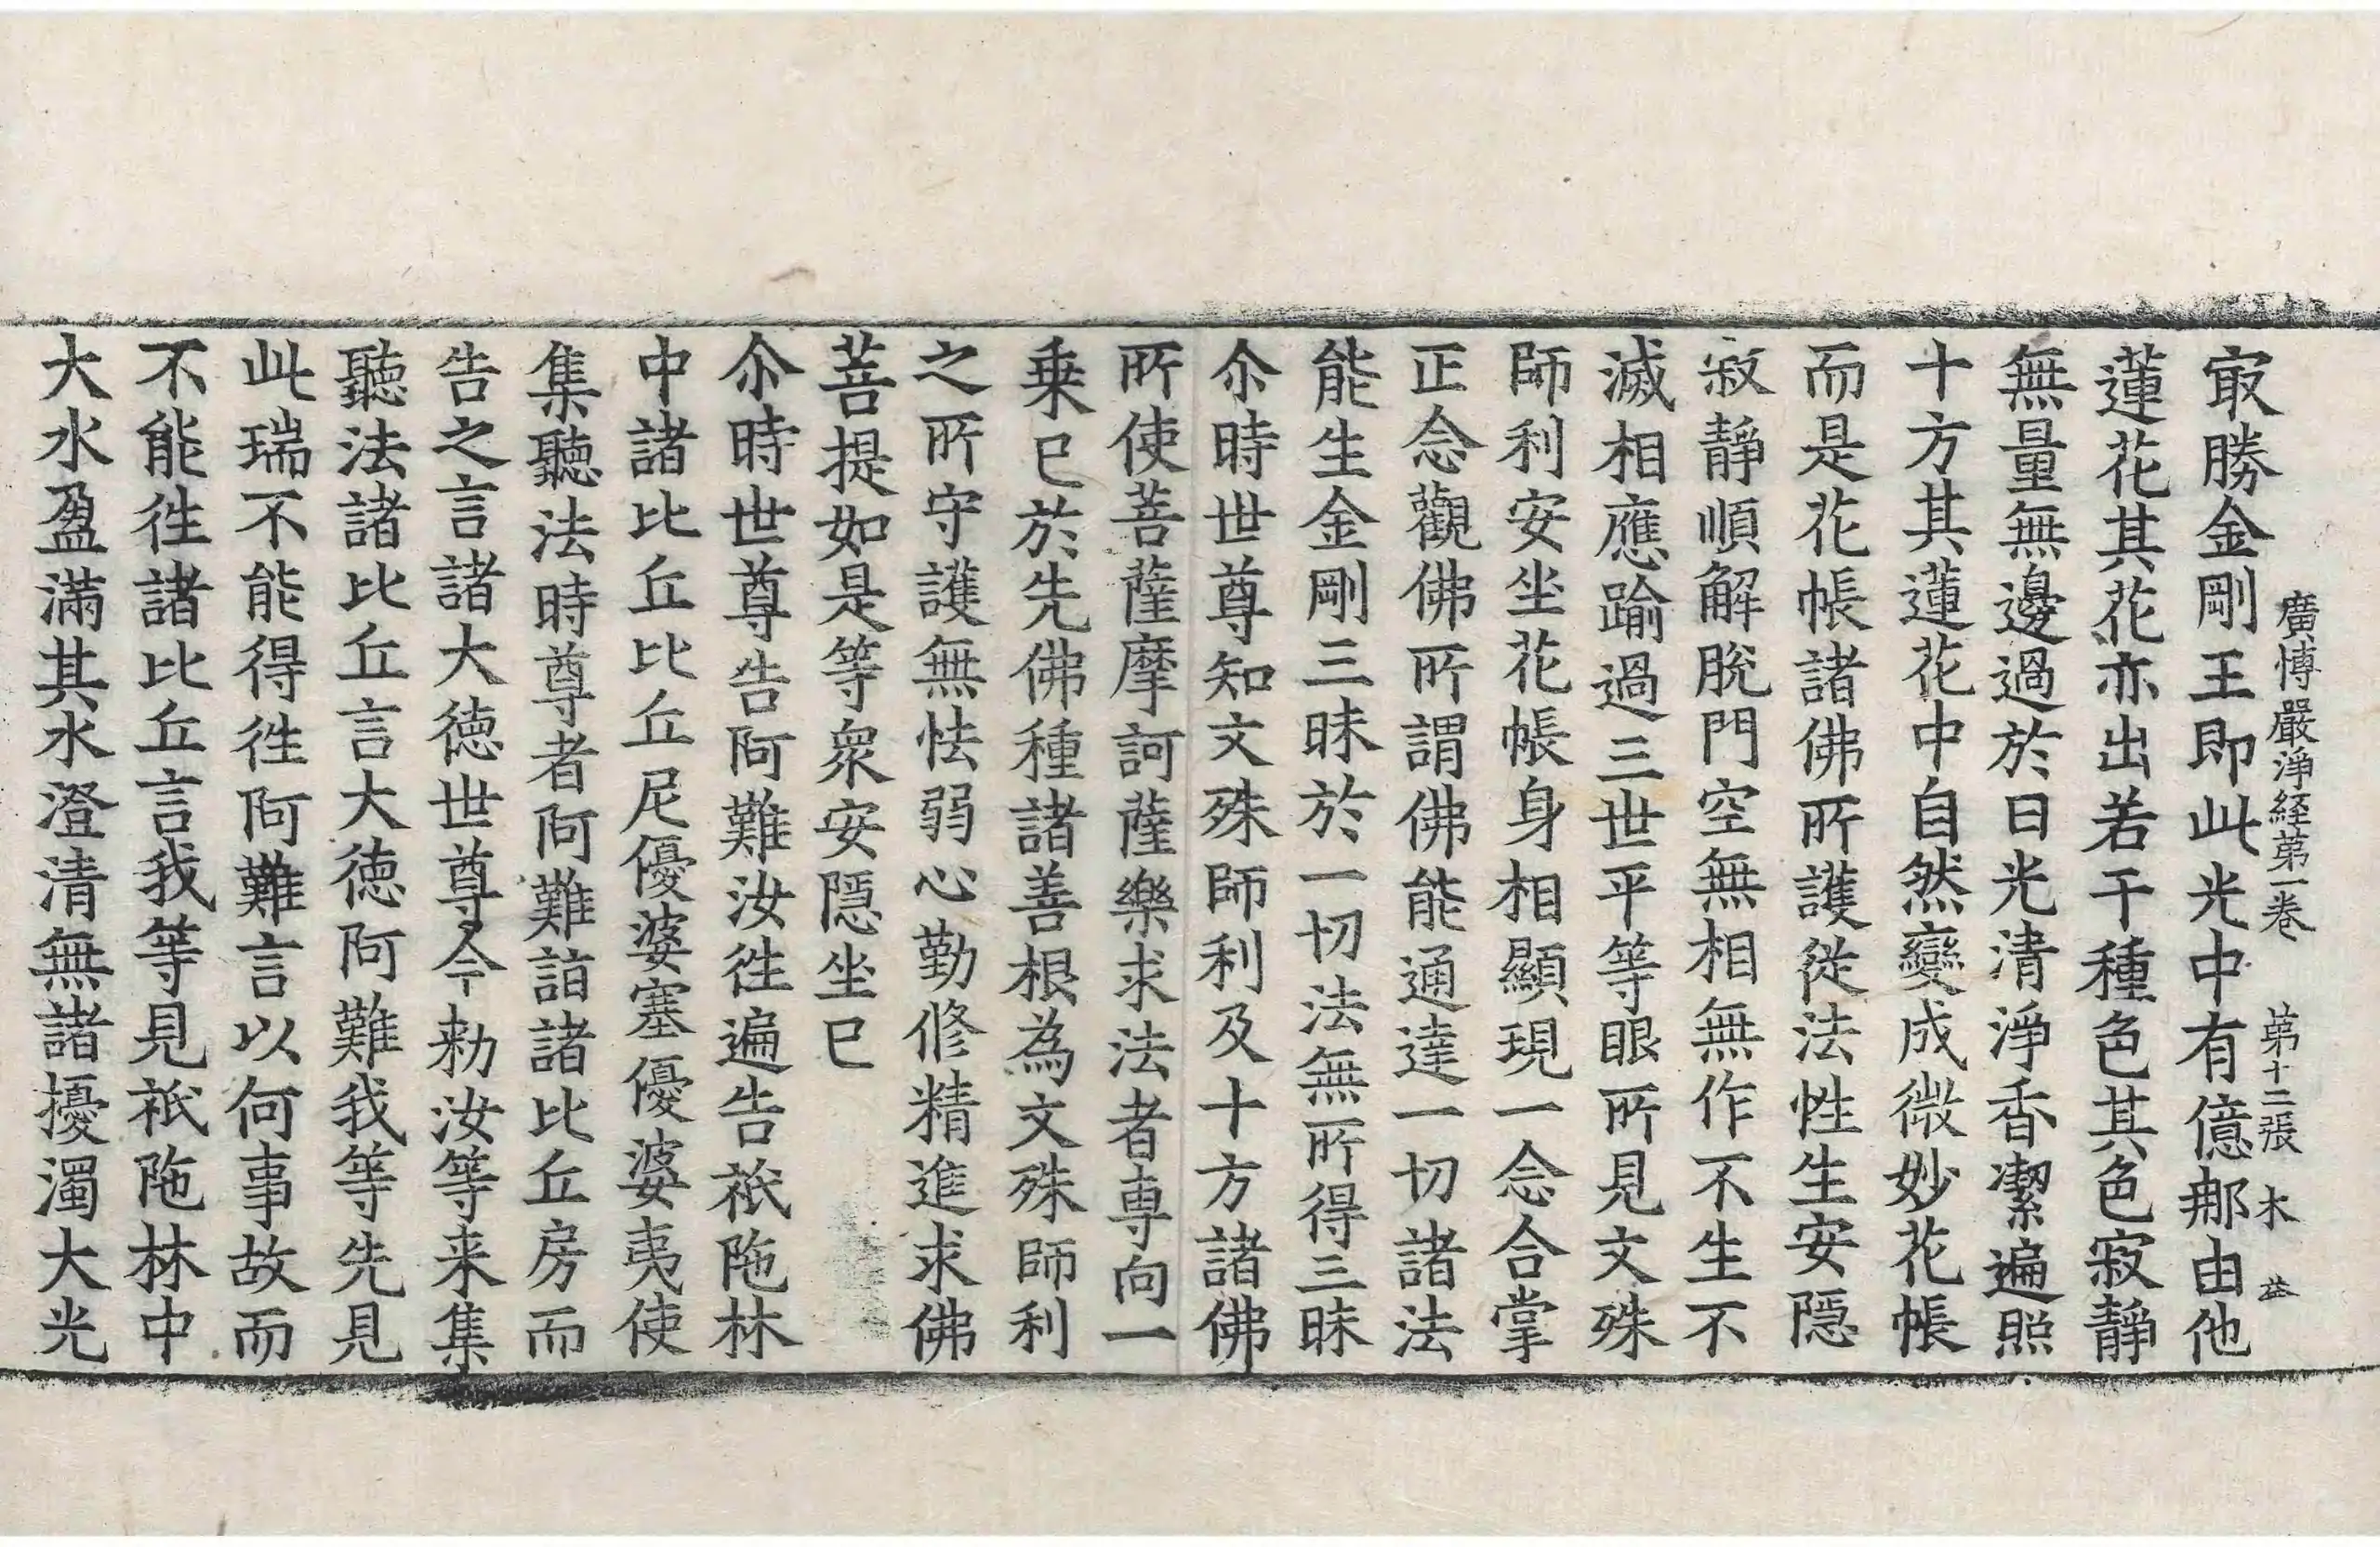 廣博嚴淨経苐一卷 苐十二張 木
㝡勝金剛王即此光中有億那由他
蓮花其花亦出若干種色其色寂靜
無量無邊過於日光清淨香潔遍照
十方其蓮花中自然變成微妙花帳
而是花帳諸佛所護從法性生安隱
寂靜順解脫門空無相無作不生不
滅相應踰過三世平等眼所見文殊
師利安坐花帳身相顯現一念合掌
正念觀佛所謂佛能通達一切諸法
能生金剛三昧於一切法無所得三昧
尒時世尊知文殊師利及十方諸佛
所使菩薩摩訶薩樂求法者専向一
乗已於先佛種諸善根為文殊師利
之所守護無怯弱心勤修精進求佛
菩提如是等衆安隱坐已
尒時世尊告阿難汝徃遍告祇陁林
中諸比丘比丘尼優婆塞優婆夷使
集聽法時尊者阿難詣諸比丘房而
告之言諸大徳世尊今勑汝等来集
聽法諸比丘言大徳阿難我等先見
此瑞不能得徃阿難言以何事故而
不能徃諸比丘言我等見祇陁林中
大水盈滿其水澄清無諸擾濁大光